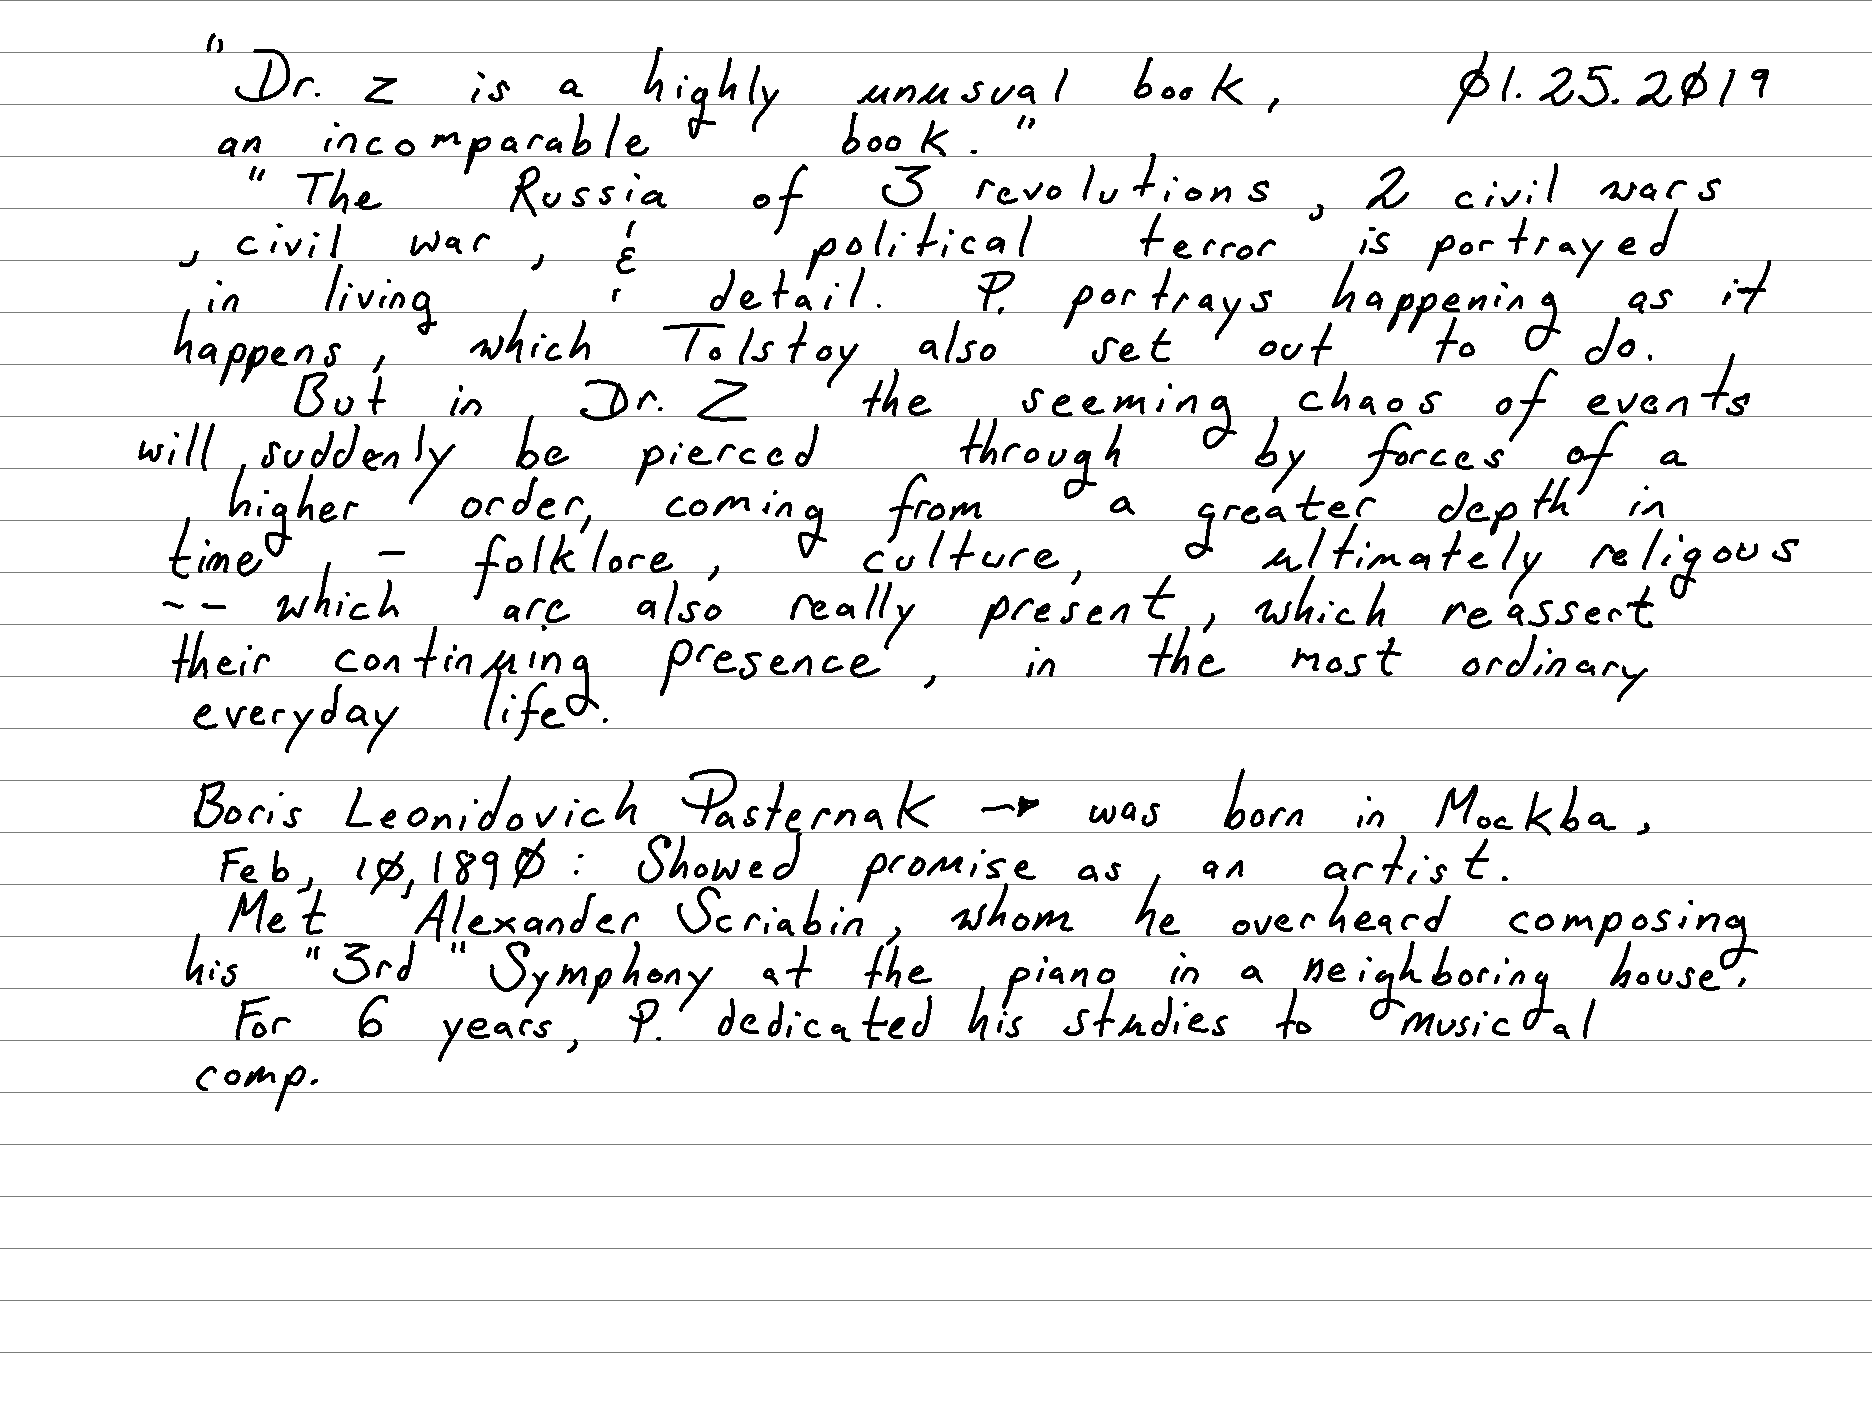 "Dr. Z is a highly unusual book, Ø1.25.2Ø19
an incomparable book."
"The Russia of 3 revolutions, 2 civil wars
, civil war, & political terror is portrayed
in living detail. P. portrays happening as it
happens, which Tolstoy also set out to do.
But in Dr. Z the seeming chaos of events
will suddenly be pierced through by forces of a
higher order, coming from a greater depth in
time - folklore, culture, ultimately religous
-- which are also really present, which reassert
their continuing presence, in the most ordinary
everyday life.
Boris Leonidovich Pasternak → was born in Mockba,
Feb, 1Ø, 189Ø: Showed promise as an artist.
Met Alexander Scriabin, whom he overheard composing
his "3rd" Symphony at the piano in a neighboring house.
For 6 years, P. dedicated his studies to musical
comp.